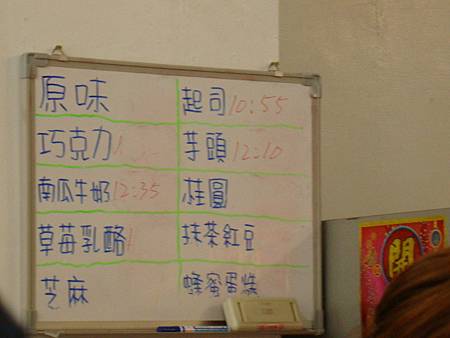 原味 起司 10:55
巧克力 芋頭 12:10
南瓜牛奶 12:35 桂圓
草莓乳酪 抹茶紅豆
芝麻 蜂蜜蛋糕
開